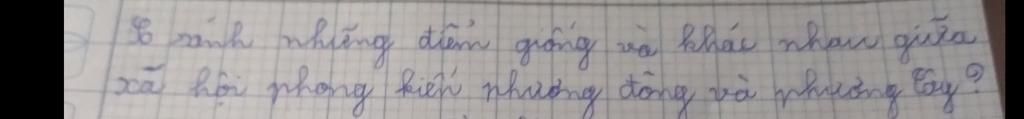 So sánh những điểm giống và khác nhau giữa
xã hội phong kiến phương đông và phương tây?